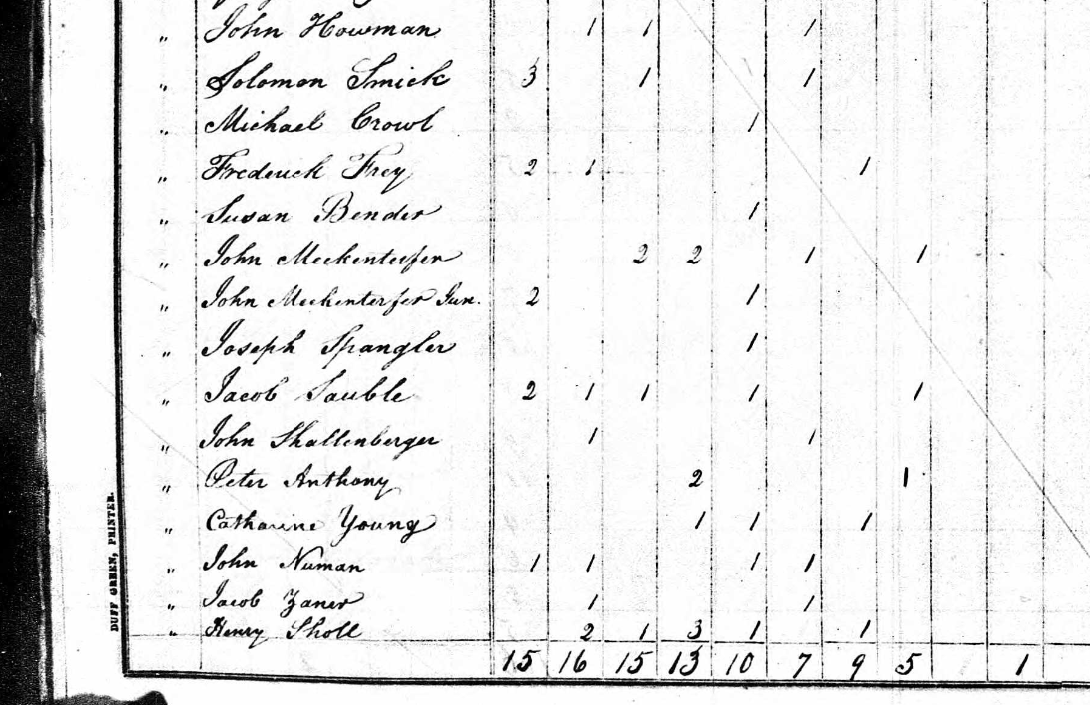 „ John Howman 1 1 1
„ Solomon Smick 3 1 1
„ Michael Crowl 1
„ Frederick Frey 2 1 1
„ Susan Bender 1
„ John Meckenterfer 2 2 1 1
„ John Meckenterfer Jun. 2 1
„ Joseph Spangler 1
„ Jacob Sauble 2 1 1 1 1
„ John Shallenberger 1 1
„ Peter Anthony 2 1
„ Catharine Young 1 1 1
„ John Numan 1 1 1 1
„ Jacob Zaner 1 1
„ Henry Sholl 2 1 3 1 1
15 16 15 13 10 7 9 5 1
DUFF GREEN, PRINTER.